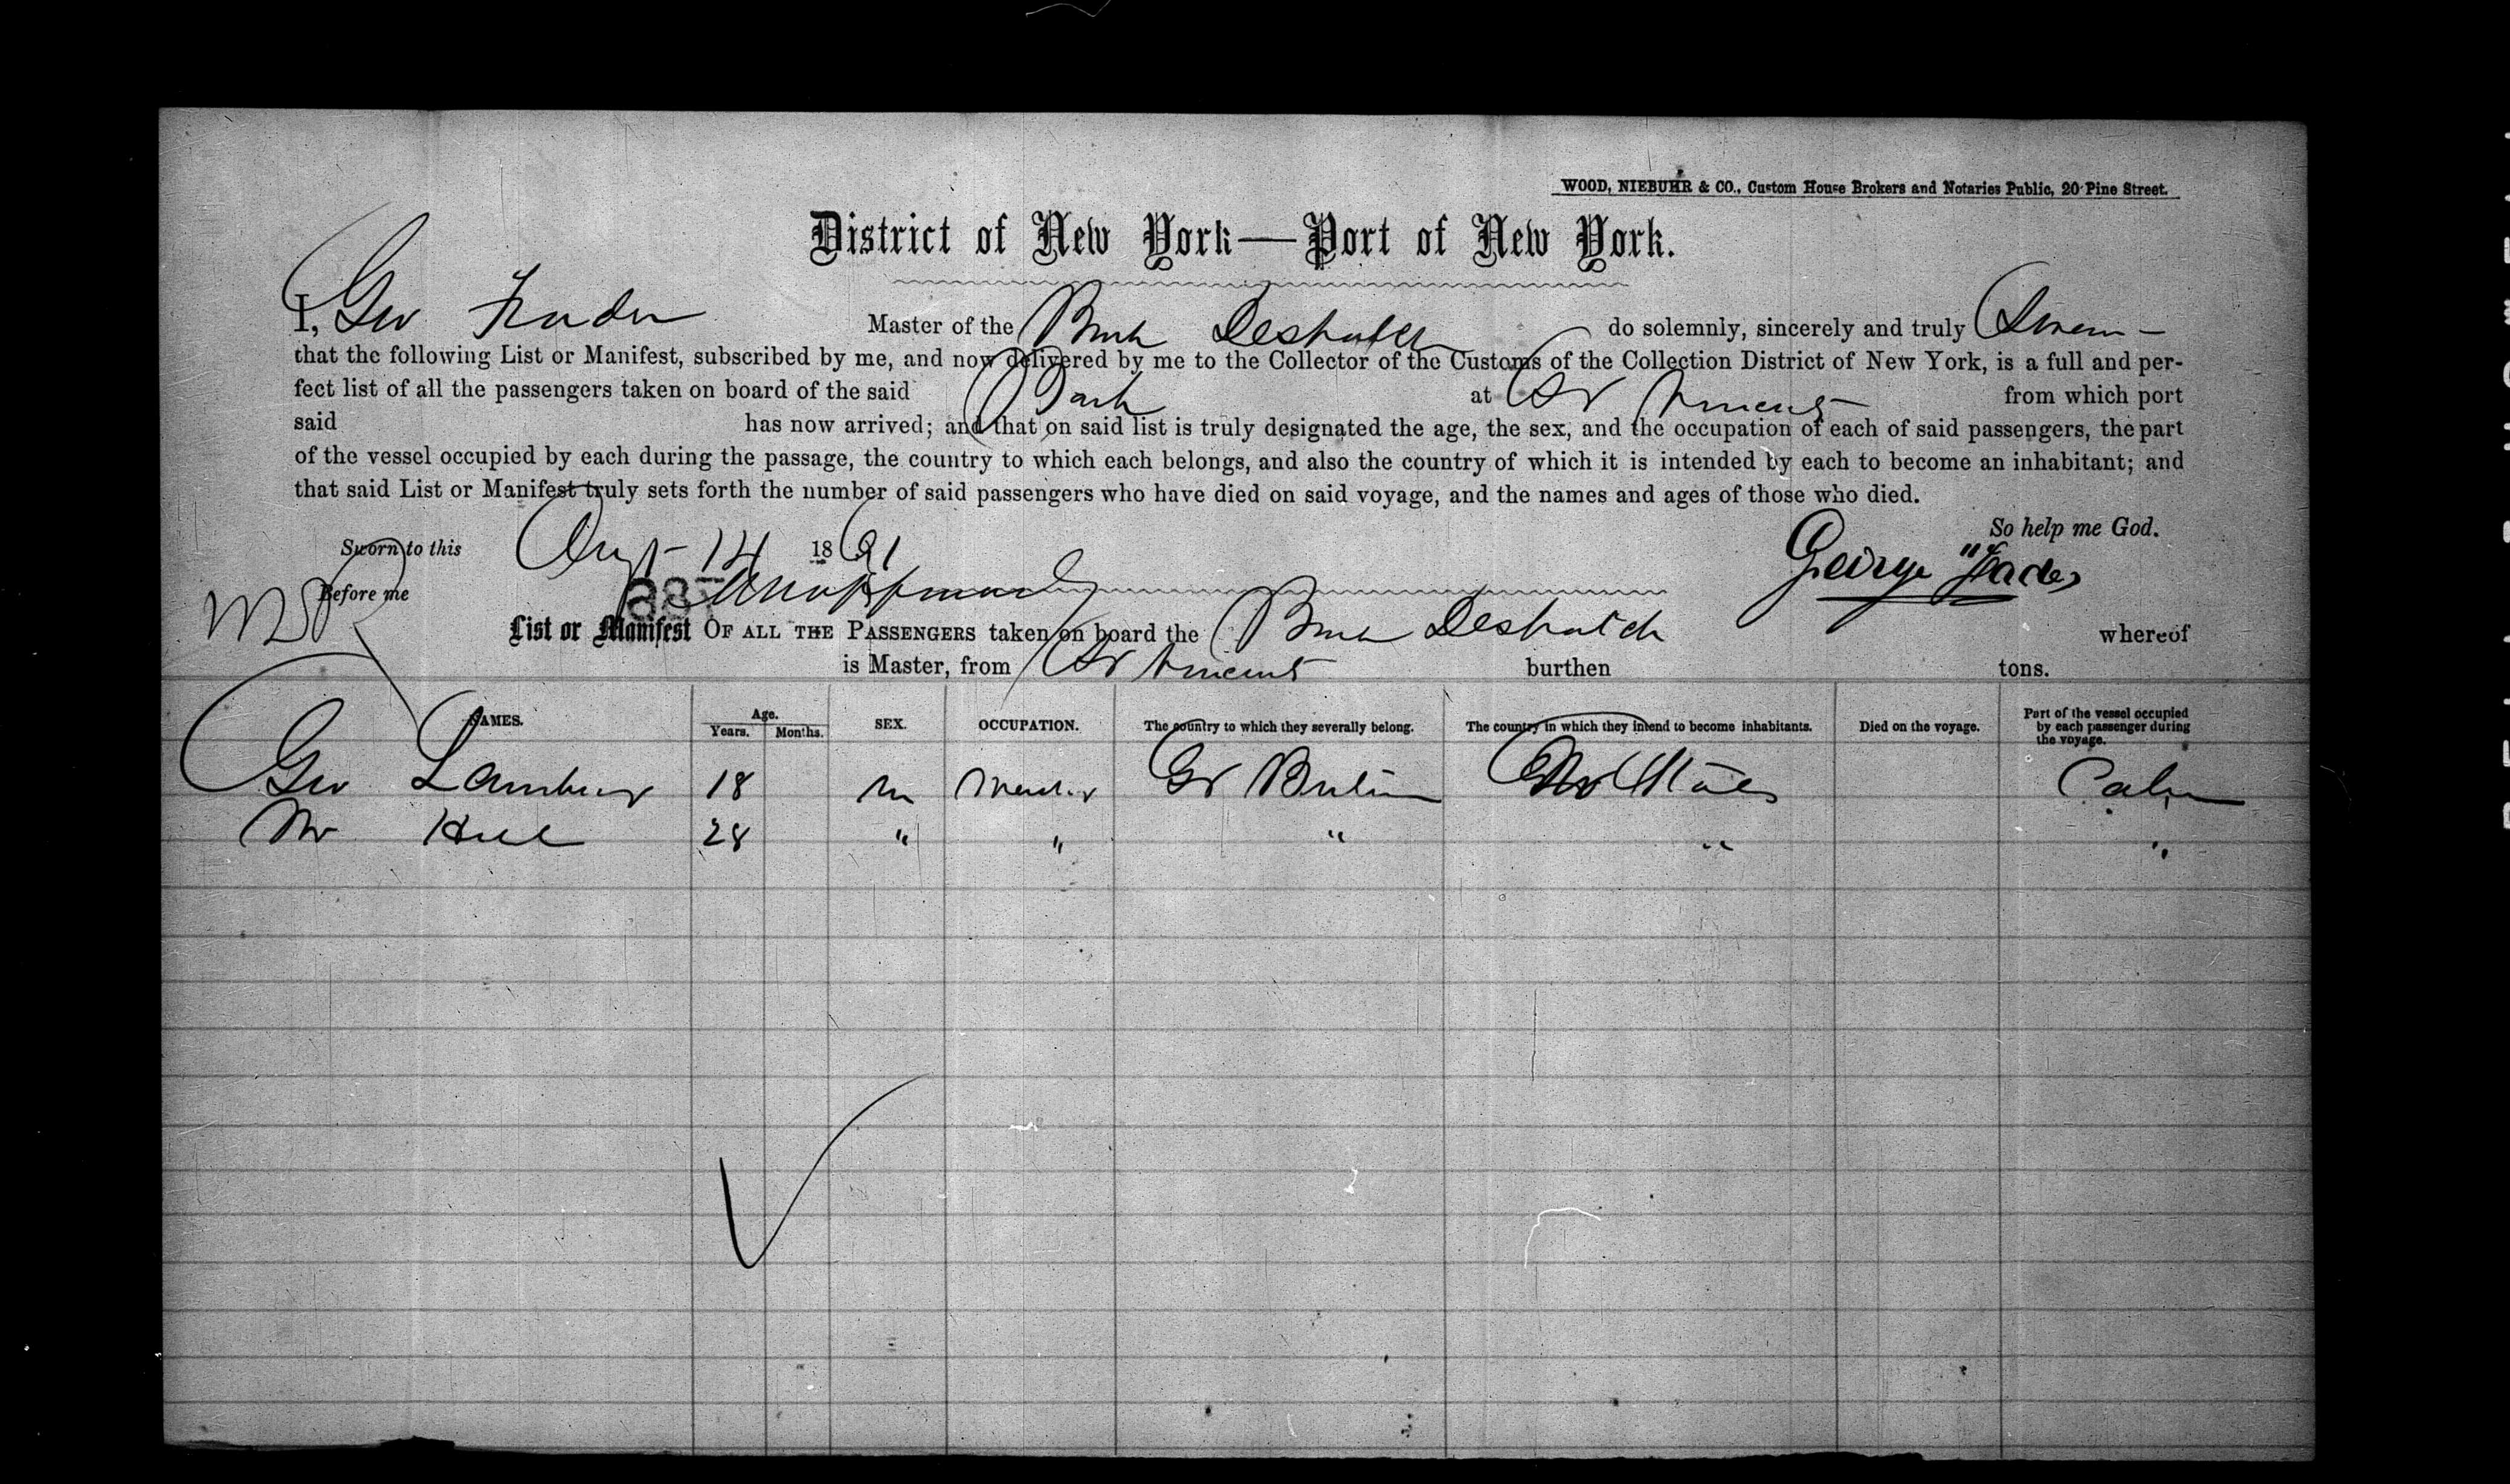 WOOD, NIEBUHR & CO., Custom House Brokers and Notaries Public, 20 Pine Street.
District of New York—Port of New York.
I, Geo Master of the Despatch do solemnly, sincerely and truly Swear
that the following List or Manifest, subscribed by me, and now delivered by me to the Collector of the Customs of the Collection District of New York, is a full and per-
fect list of all the passengers taken on board of the said Bark at St Vincent from which port
said has now arrived; and that on said list is truly designated the age, the sex, and the occupation of each of said passengers, the part
of the vessel occupied by each during the passage, the country to which each belongs, and also the country of which it is intended by each to become an inhabitant; and
that said List or Manifest truly sets forth the number of said passengers who have died on said voyage, and the names and ages of those who died.
So help me God.
Sworn to this Augt 14 1891
George
Before me
List or Manifest OF ALL THE PASSENGERS taken on board the Despatch whereof
is Master, from St Vincent burthen tons.
NAMES. Age. Years. Months. SEX. OCCUPATION. The country to which they severally belong. The country in which they intend to become inhabitants. Died on the voyage. Part of the vessel occupied by each passenger during the voyage.
Geo 18 m Gt Britain States Cabin
Mr 28 " " " " "